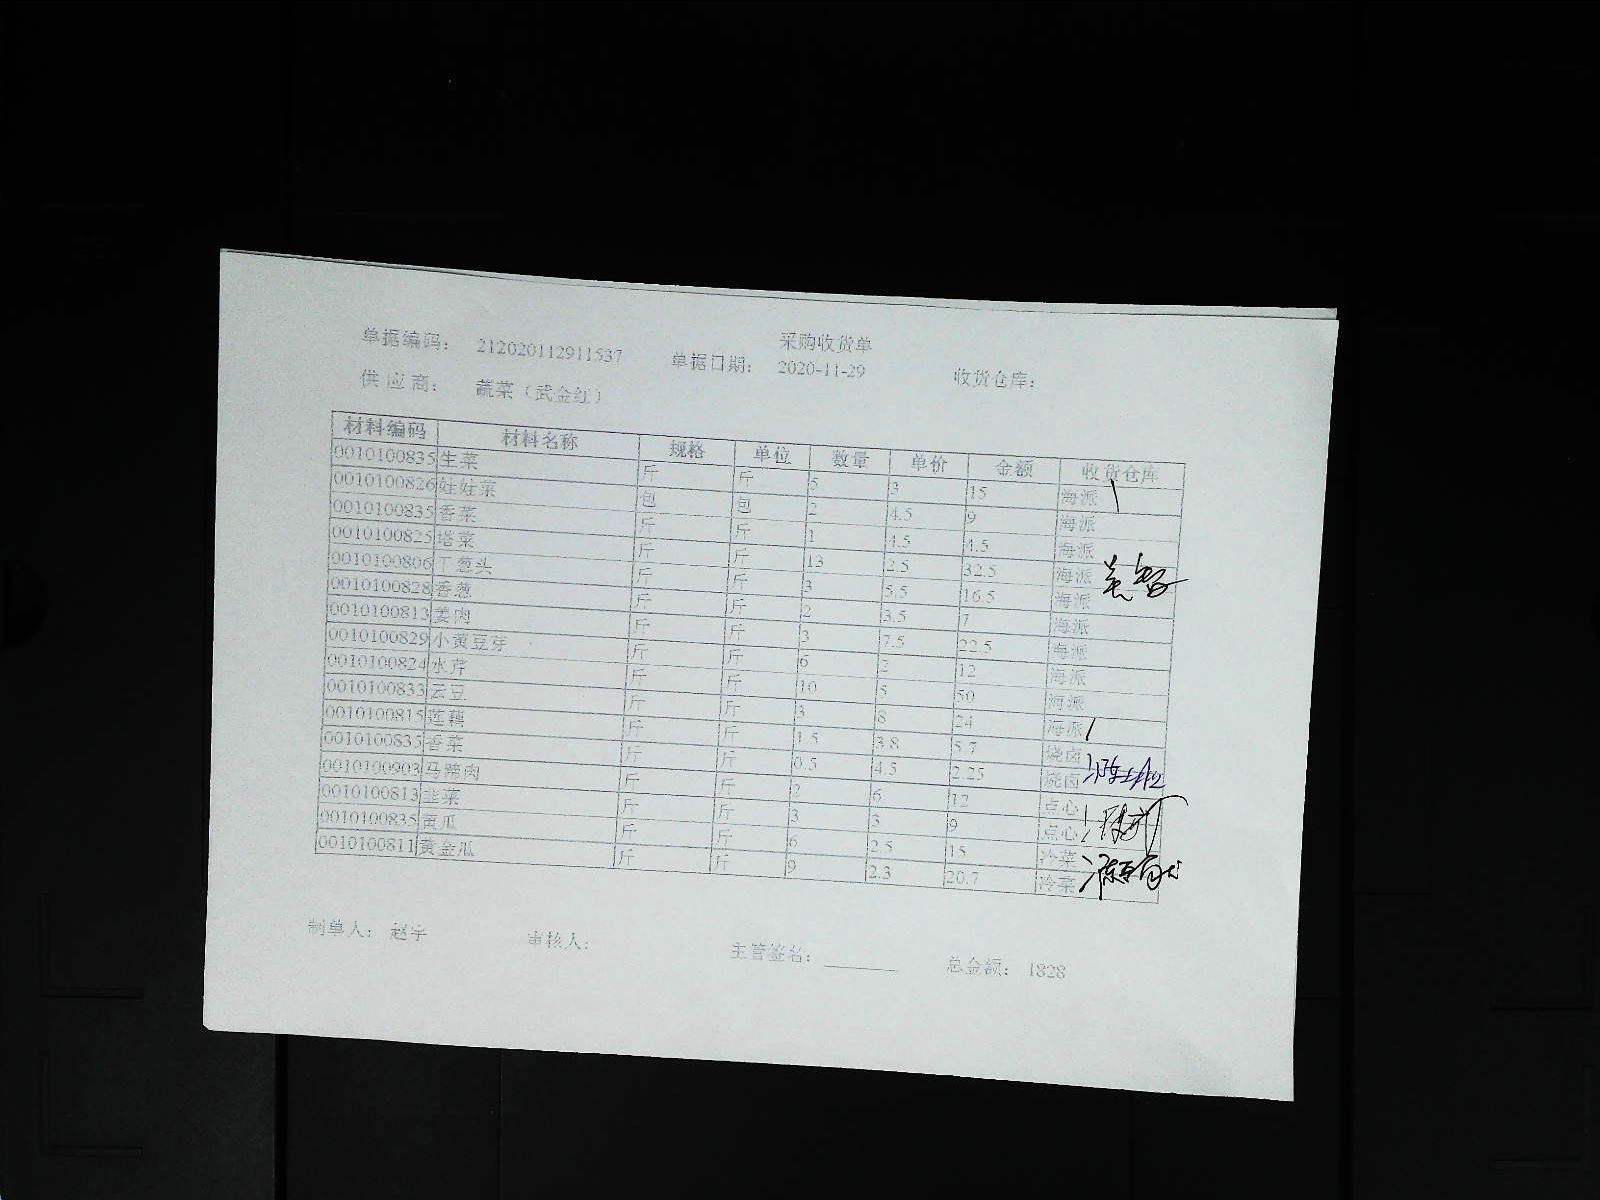 采购收货单
单据编码： 212020112911537 单据日期： 2020-11-29 收货仓库：
供应商： 蔬菜（武金红）
材料编码 材料名称 规格 单位 数量 单价 金额 收货仓库
0010100835 生菜 斤 斤 5 3 15 海派
0010100826 娃娃菜 包 包 2 4.5 9 海派
0010100835 香菜 斤 斤 1 4.5 4.5 海派
0010100825 塔菜 斤 斤 13 2.5 32.5 海派
0010100806 干葱头 斤 斤 3 5.5 16.5 海派
0010100828 香葱 斤 斤 2 3.5 7 海派
0010100813 姜肉 斤 斤 3 7.5 22.5 海派
0010100829 小黄豆芽 斤 斤 6 2 12 海派
0010100824 水芹 斤 斤 10 5 50 海派
0010100833 云豆 斤 斤 3 8 24 海派
0010100815 莲藕 斤 斤 1.5 3.8 5.7 烧卤
0010100835 香菜 斤 斤 0.5 4.5 2.25 烧卤
0010100903 马蹄肉 斤 斤 2 6 12 点心
0010100813 韭菜 斤 斤 3 3 9 点心
0010100835 黄瓜 斤 斤 6 2.5 15 冷菜
0010100811 黄金瓜 斤 斤 9 2.3 20.7 冷菜
制单人： 赵宇 审核人： 主管签名： 总金额： 1828